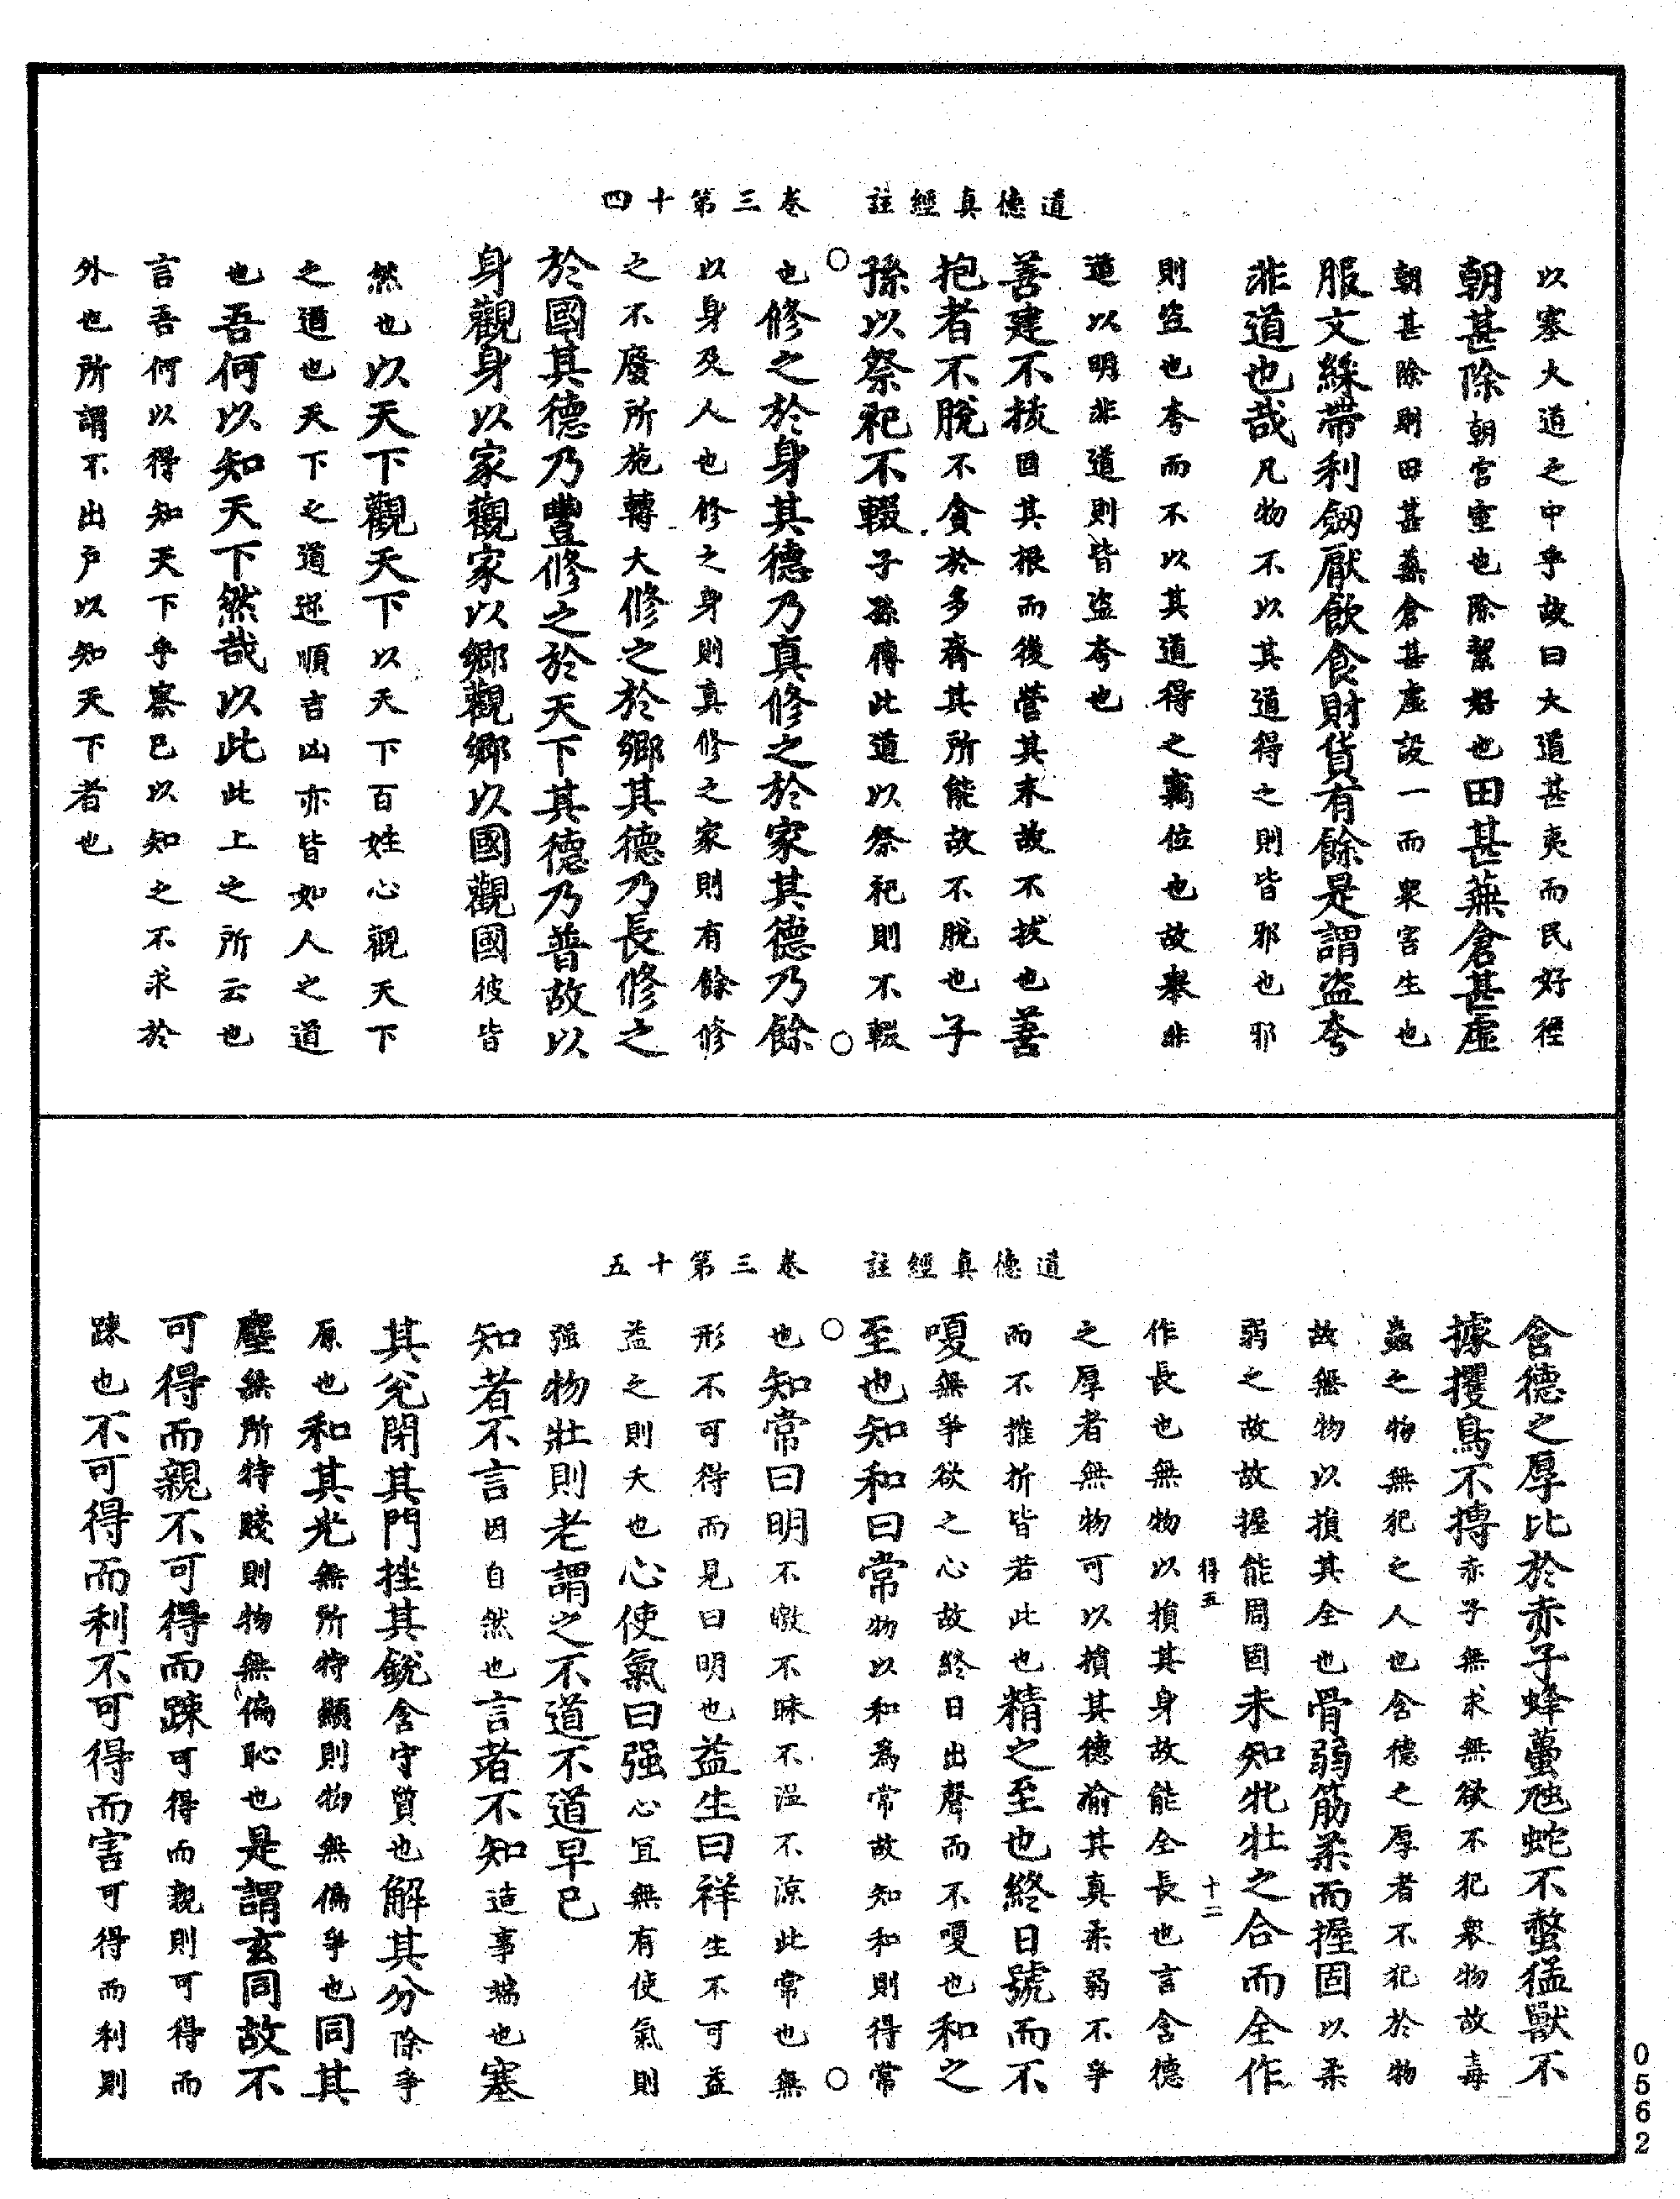 道德真經註　卷三第十四
以塞大道之中乎故曰大道甚夷而民好徑
朝甚除朝宮室也除潔好也田甚蕪倉甚虛
朝甚除則田甚蕪倉甚虛設一而衆害生也
服文綵帶利劔厭飲食財貨有餘是謂盜夸
非道也哉凡物不以其道得之則皆邪也邪
則盜也夸而不以其道得之竊位也故舉非
道以明非道則皆盜夸也
善建不拔固其根而後營其末故不拔也善
抱者不脫不貪於多齊其所能故不脫也子
孫以祭祀不輟子孫傳此道以祭祀則不輟
也修之於身其德乃真修之於家其德乃餘
以身及人也修之身則真修之家則有餘修
之不廢所施轉大修之於鄉其德乃長修之
於國其德乃豐修之於天下其德乃普故以
身觀身以家觀家以鄉觀鄉以國觀國彼皆
然也以天下觀天下以天下百姓心觀天下
之道也天下之道逆順吉凶亦皆如人之道
也吾何以知天下然哉以此此上之所云也
言吾何以得知天下乎察已以知之不求於
外也所謂不出戶以知天下者也
道德真經註　卷三第十五
含德之厚比於赤子蜂蠆虺蛇不螫猛獸不
據攫鳥不搏赤子無求無欲不犯衆物故毒
蟲之物無犯之人也含德之厚者不犯於物
故無物以損其全也骨弱筋柔而握固以柔
弱之故故握能周固未知牝牡之合而全作
得五　十二
作長也無物以損其身故能全長也言含德
之厚者無物可以損其德渝其真柔弱不爭
而不摧折皆若此也精之至也終日號而不
嗄無爭欲之心故終日出聲而不嗄也和之
至也知和曰常物以和為常故知和則得常
也知常曰明不皦不昧不溫不涼此常也無
形不可得而見曰明也益生曰祥生不可益
益之則夭也心使氣曰强心宜無有使氣則
强物壯則老謂之不道不道早已
知者不言因自然也言者不知造事端也塞
其兌閉其門挫其銳含守質也解其分除爭
原也和其光無所特顯則物無偏爭也同其
塵無所特賤則物無偏恥也是謂玄同故不
可得而親不可得而踈可得而親則可得而
踈也不可得而利不可得而害可得而利則
0562